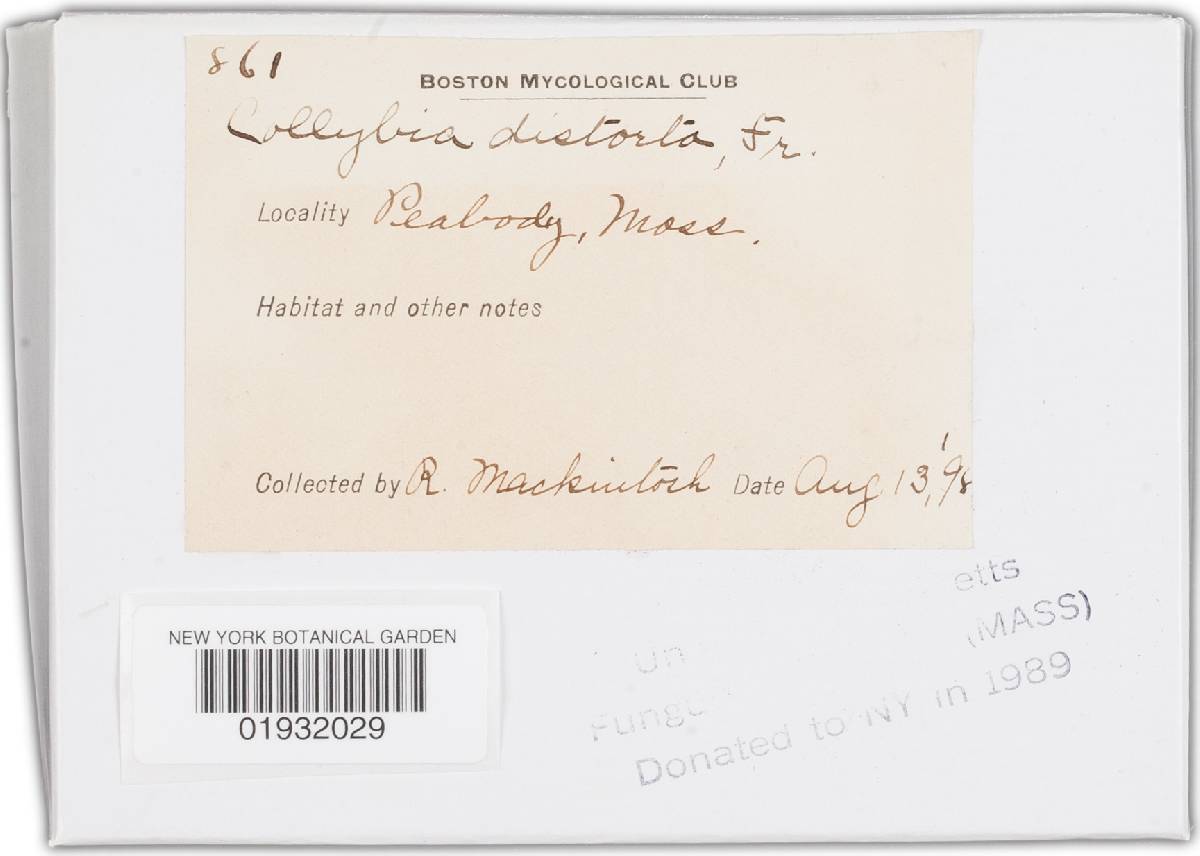 861
BOSTON MYCOLOGICAL CLUB
Collybia distorta, Fr.
Locality Peabody, Mass.
Habitat and other notes
Collected by R. Mackintosh Date Aug. 13, '98
NEW YORK BOTANICAL GARDEN
01932029
etts
Un (MASS)
Fungu
Donated to NY in 1989